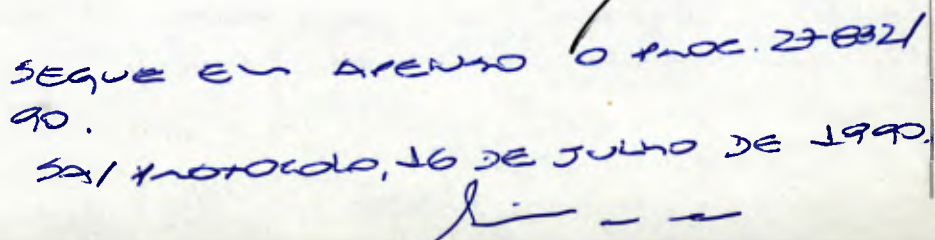 SEGUE EM APENSO O PROC. 27-832/
90.
SA/ PROTOCOLO, 16 DE JULHO DE 1990.